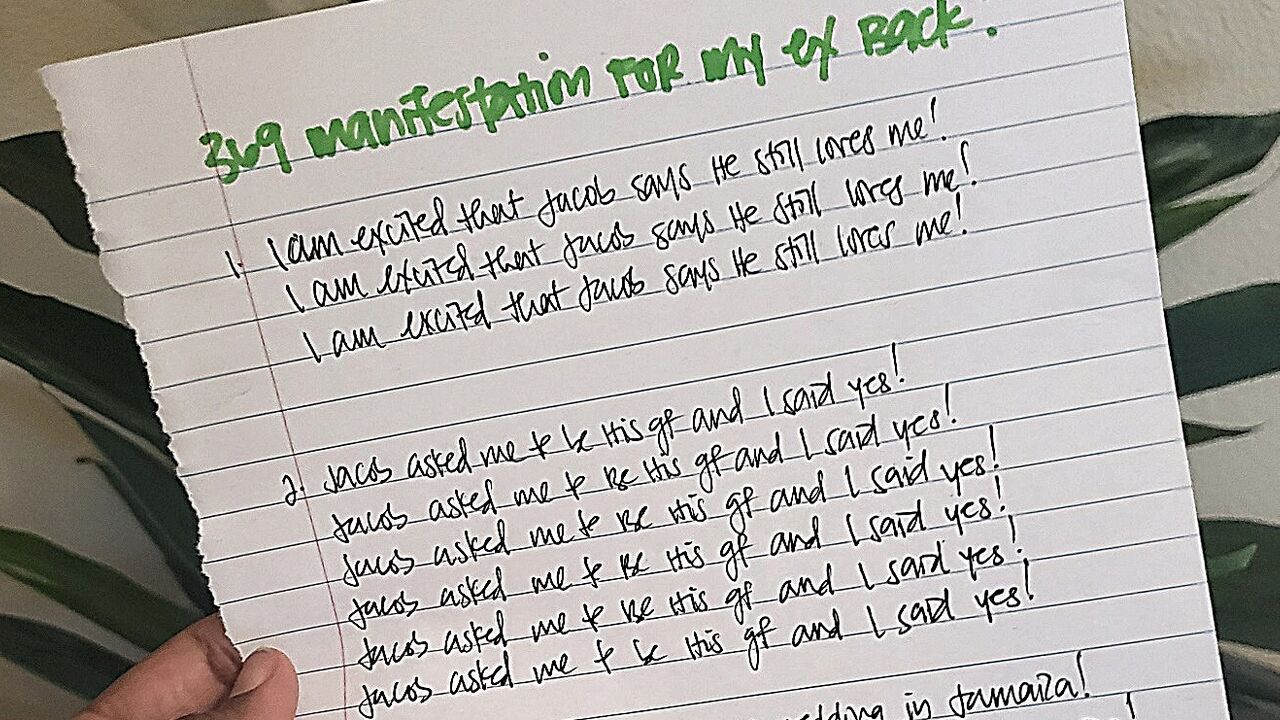 369 manifestation FOR my ex Back.
1. I am excited that Jacob says He still loves me!
I am excited that Jacob says He still loves me!
I am excited that Jacob says He still loves me!
2. Jacob asked me to be His gf and I said yes!
Jacob asked me to be His gf and I said yes!
Jacob asked me to be His gf and I said yes!
Jacob asked me to be His gf and I said yes!
Jacob asked me to be His gf and I said yes!
Jacob asked me to be His gf and I said yes!
in Jamaica!